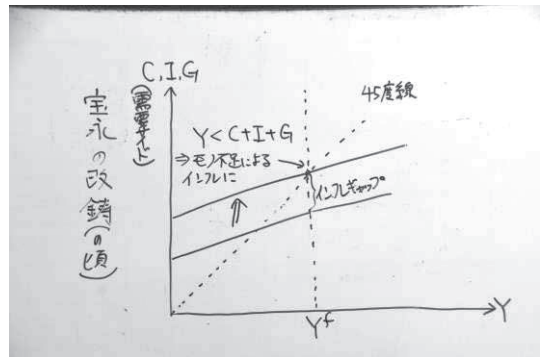 宝永の改鋳(の頃)
C,I,G
(需要サイド)
45度線
Y<C+I+G
⇒モノ不足による
インフレに
インフレギャップ
Y
Yf